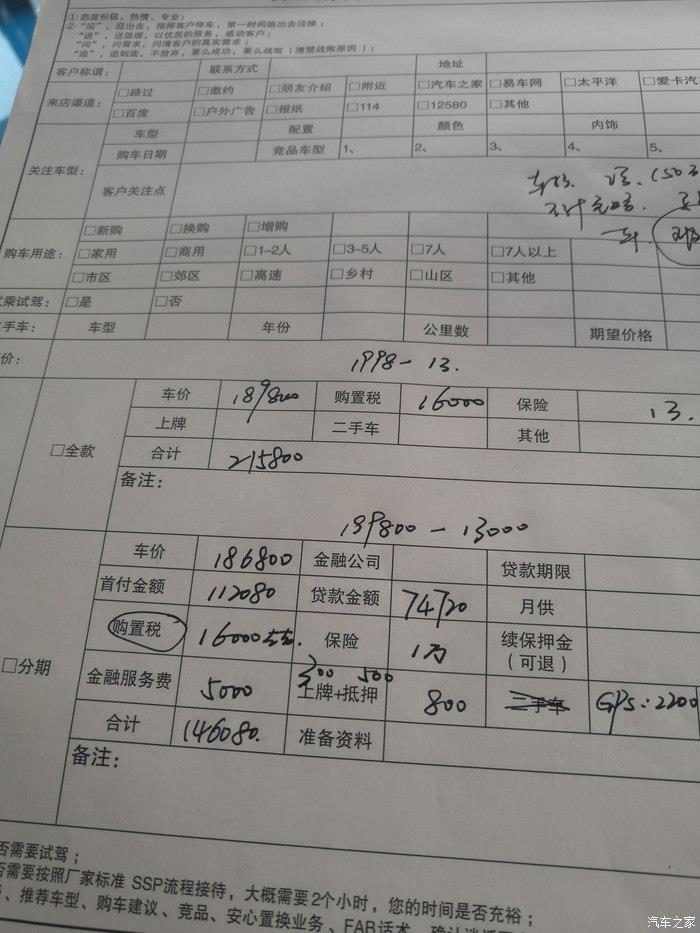 ①态度积极、热情、专业;
②“迎”,迎出去,指挥客户停车,第一时间跑出去迎接;
“送”,送温暖,以优质的服务,感动客户;
“问”,问需求,问清客户的真实需求;
“追”,追到底,不放弃,要么成功,要么战败(清楚战败原因);
客户称谓: 联系方式 地址
来店渠道: □路过 □邀约 □朋友介绍 □附近 □汽车之家 □易车网 □太平洋 □爱卡汽
□百度 □户外广告 □报纸 □114 □12580 □其他
关注车型: 车型 配置 颜色 内饰
购车日期 竞品车型 1、 2、 3、 4、 5、
客户关注点
购车用途: □新购 □换购 □增购
□家用 □商用 □1-2人 □3-5人 □7人 □7人以上
□市区 □郊区 □高速 □乡村 □山区 □其他
乘试驾: □是 □否
手车: 车型 年份 公里数 期望价格
价: 1998-13.
□全款 车价 189800 购置税 16000 保险 13.
上牌 二手车 其他
合计 215800
备注:
199800-13000
□分期 车价 186800 金融公司 贷款期限
首付金额 112080 贷款金额 74720 月供
购置税 16000左右. 保险 1万 续保押金(可退)
300 500
金融服务费 5000 上牌+抵押 800 二手车 GPS:2200
合计 146080. 准备资料
备注:
否需要试驾;
否需要按照厂家标准 SSP流程接待,大概需要2个小时,您的时间是否充裕;
、推荐车型、购车建议、竞品、安心置换业务、FAB话术
汽车之家